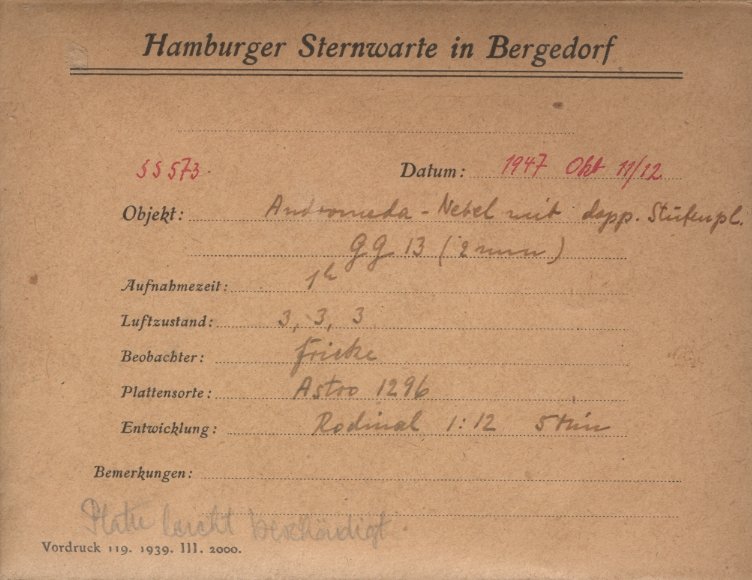 Hamburger Sternwarte in Bergedorf
SS 573. Datum: 1947 Okt 11/12
Objekt: Andromeda-Nebel mit dopp. Stufenpl.
GG 13 (2 mm)
Aufnahmezeit: 1h
Luftzustand: 3, 3, 3
Beobachter: Fricke
Plattensorte: Astro 1296
Entwicklung: Rodinal 1:12 5 Min
Bemerkungen:
Platte leicht beschädigt.
Vordruck 119. 1939. III. 2000.